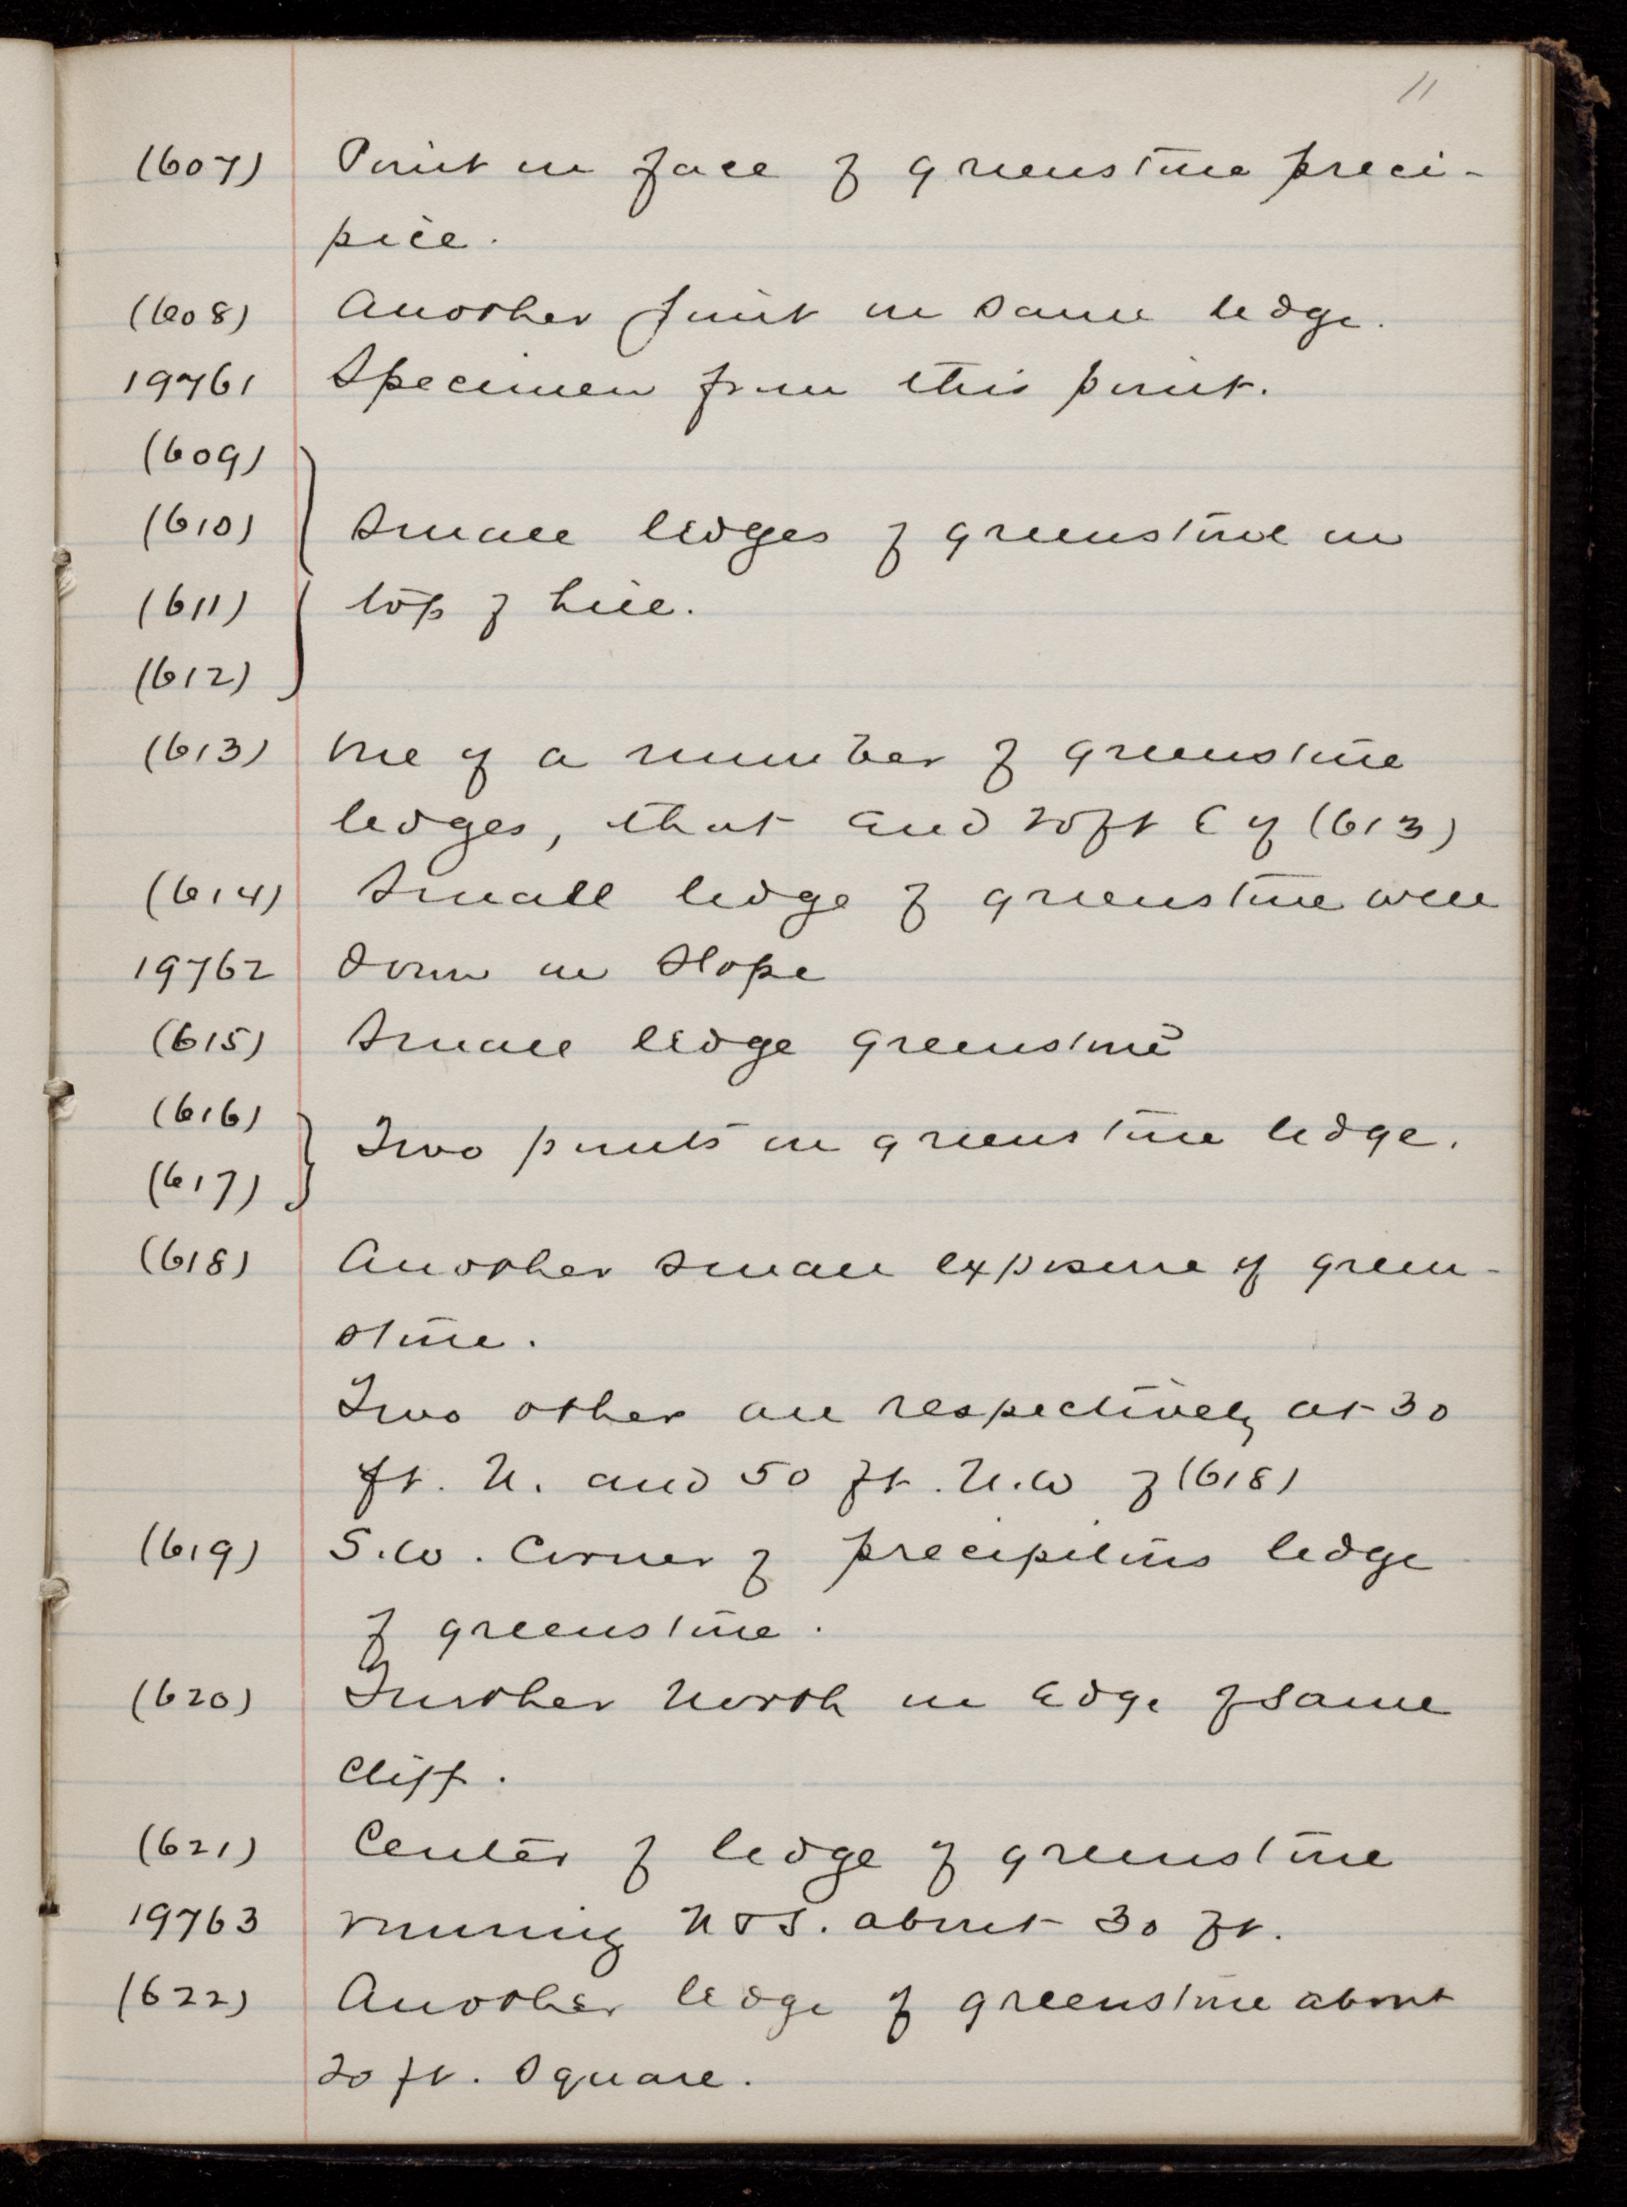 11
(607) Point on face of greenstone preci-
pice.
(608) Another point on same ledge.
19761 Specimen from this point.
(609)
(610) Small ledges of greenstone on
(611) top of hill.
(612)
(613) One of a number of greenstone
ledges, that end 20 ft E of (613)
(614) Small ledge of greenstone well
19762 down on slope
(615) Small ledge greenstone
(616)
Two points on greenstone ledge.
(617)
(618) Another small exposure of green-
stone.
Two other are respectively at 30
ft. N. and 50 ft. N.W of (618)
(619) S.W. Corner of precipitous ledge
of greenstone.
(620) Further North on edge of same
cliff.
(621) Center of ledge of greenstone
19763 running N & S. about 30 ft.
(622) Another ledge of greenstone about
20 ft. square.